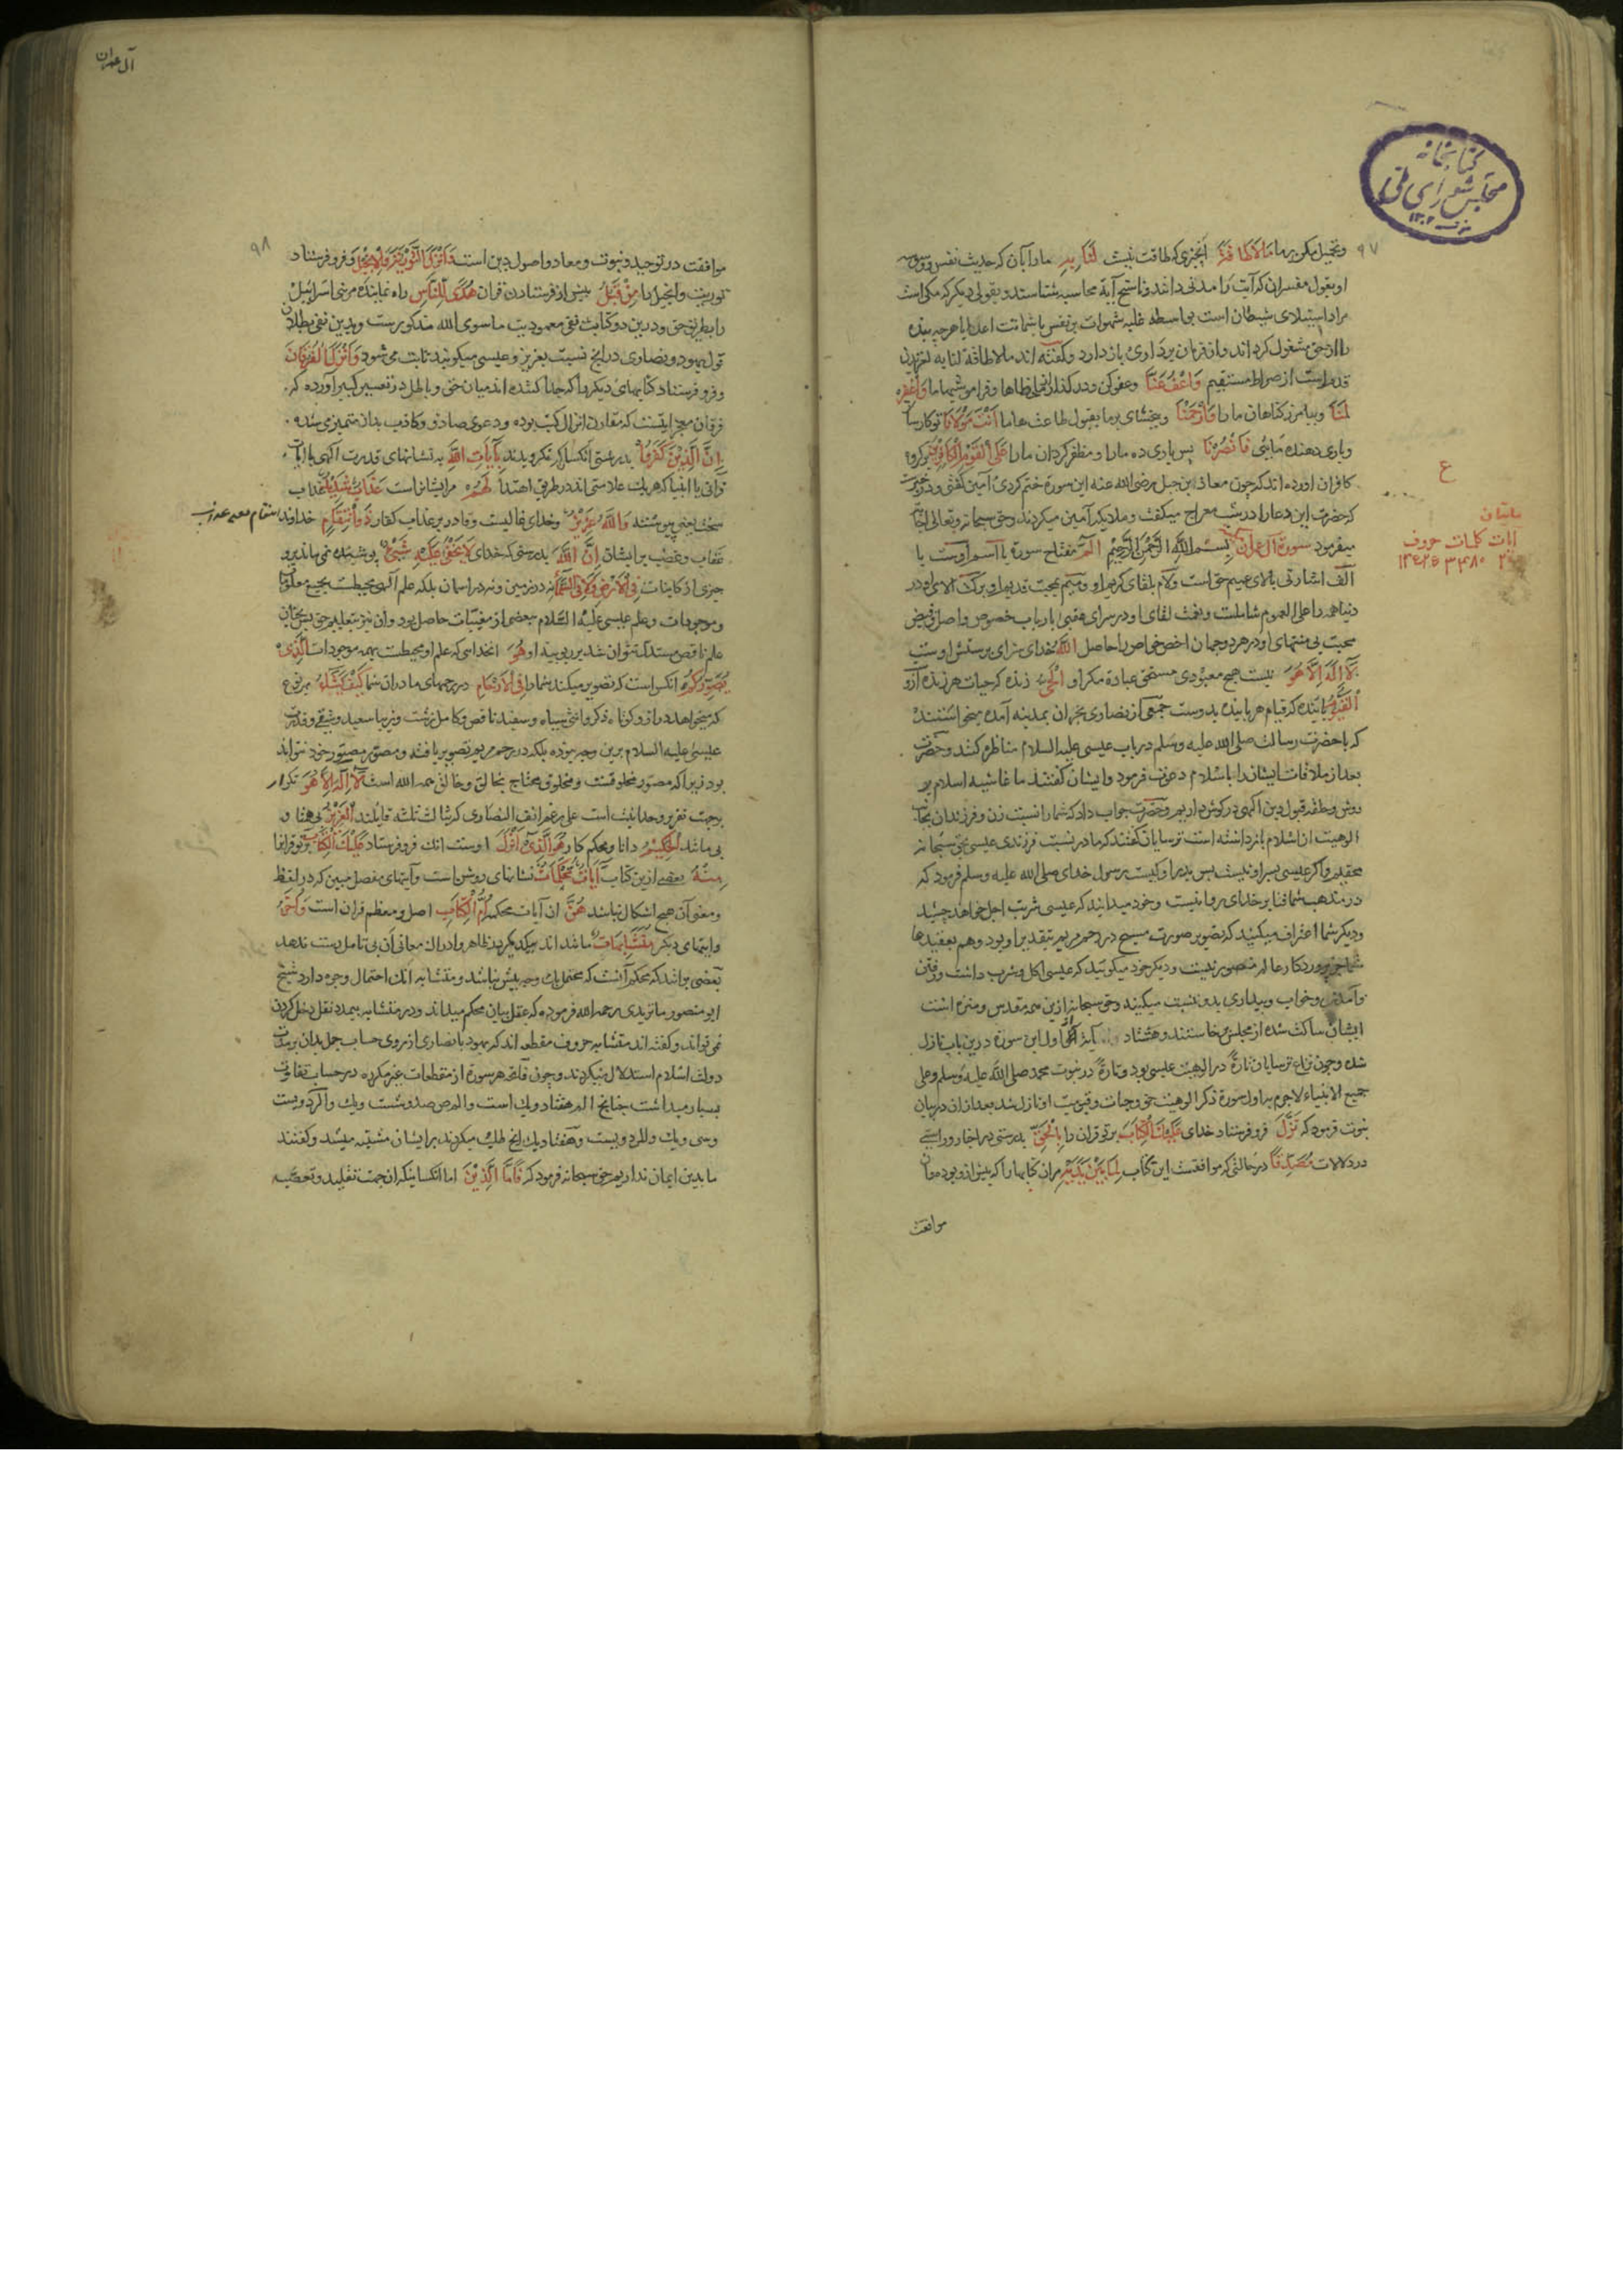 کتابخانه
مجلس شورای ملی
۹۷
وتحمیل مکن برما مَالَاطَاقَةَ انچیزی که طاقت نیست لَنَا بِهِ مارا بآن که حدیث نفس و وسوسه
او بقول مفسران که آیت را مدنی دانند و ناسخ آیهٔ محاسبه شناسند و بقولی دیکر که مکی است
مراد استیلای شیطان است بواسطه غلبه شهوات بر نفس با شماتت اعدا یا هرچه بنده
را از حق مشغول کرداند و از فرمان برداری باز دارد وکفته اند مالاطاقة لنا به لغزیدن
قدم است از صراط مستقیم وَاعْفُ عَنَّا وعفو کن ودر کذران خطاها و فراموشیهاما وَاغْفِرْ
لَنَا وبیامرز کناهان ما را وَارْحَمْنَا وببخشای بر ما بقبول طاعت هاما اَنْتَ مَوْلَانَا تو کارساز
ویاری دهنده مایی فَانْصُرْنَا پس یاری ده مارا و مظفر کردان مارا عَلَی الْقَوْمِ الْکَافِرِینَ برکروه
کافران اورده اند که چون معاذ ابن جبل رضی الله عنه این سوره ختم کردی آمین کفتی ودر خبرست
که حضرت این دعا را در شب معراج میکفت و ملایکه آمین میکردند وحق سبحانه وتعالی اجابت
میفرمود سورة آل عمران بِسْمِ اللّٰهِ الرَّحْمٰنِ الرَّحِیمِ الٓمٓ مفتاح سوره یا اسم اوست یا
الف اشارتی بالای عمیم حق است ولام بلقای کریم او ومیم بمحبت قدیم او برکت الای او در
دنیا همه را علی العموم شاملست ونعمت لقای او در سرای عقبی بارباب خصوص واصل وفیض
محبت بی منتهای او در هر دوجهان اخص خواص را حاصل اَللّٰهُ خدای سزای پرستش اوست
لَٓا اِلٰهَ اِلَّا هُوَ نیست هیچ معبودی مستحق عبادة مکر او الْحَیُّ زنده که حیات هر زنده ازو
الْقَیُّومُ پاینده که قیام هر پاینده بدوست جمعی از نصارای نجران بمدینه آمده میخواستند
که با حضرت رسالت صلی الله علیه وسلم درباب عیسی علیه السلام مناظره کنند وحضرت
بعد از ملاقات ایشانرا باسلام دعوت فرمود وایشان کفتند ما غاشیه اسلام بر
دوش وحلقه قبول دین الهی در کوش داریم وحضرت جواب داد که شمارا نسبت زن وفرزندان بجناب
الوهیت از اسلام بازداشته است ترسایان کفتند که ما در نسبت فرزندی عیسی بحق سبحانه
محقیم واکر عیسی پسر او نیست پس پدر او کیست رسول خدای صلی الله علیه وسلم فرمود که
در مذهب شما فنا بر خدای روا نیست وخود میدانید که عیسی شربت اجل خواهد چشید
ودیکر شما اعتراف میکنید که تصویر صورت مسیح در رحم مریم بتقدیر او بود وهم بعقیدهٔ
شما پروردکار عالم مصور نیست ودیکر خود میکویید که عیسی اکل وشرب داشت ورفتن
وآمدن وخواب وبیداری بدو نسبت میکنید وحق سبحانه ازین همه مقدس ومنزه است
ایشان ساکت شده از مجلس خاستند وهشتاد آیة از اول این سورة درین باب نازل
شده وچون نزاع ترسایان تارةً در الوهیت عیسی بود وتارةً در نبوت محمد صلی الله علیه وسلم وعلی
جمیع الانبیاء لاجرم در اول سورة ذکر الوهیت حق وحیات وقیومیت او نازل شد بعد ازان در بیان
نبوت فرمود که نَزَّلَ فروفرستاد خدای عَلَیْکَ الْکِتَابَ برتو قران را بِالْحَقِّ براستی در اخبار وراستی
در دلالات مُصَدِّقًا در حالتی که موافقست این کتاب لِمَا بَیْنَ یَدَیْهِ مران کتابها را که پیش ازو بوده وان
موافقت
ع
آیات کلمات حروف
۲۰۰ ۳۴۸۰ ۱۴۵۲۵
آل عمران
۹۸
موافقت در توحید ونبوت ومعاد واصول دین است وَاَنْزَلَ التَّوْرٰیةَ وَالْاِنْجِیلَ وفرو فرستاد
توریت وانجیل را مِنْ قَبْلُ پیش از فرستادن قران هُدًی لِلنَّاسِ راه نماینده مر بنی اسرائیل
را بطریق حق ودرین دو کتاب نفی معبودیت ماسوی الله مذکورست وبدین نفی بطلان
قول یهود ونصاری درانچ نسبت بعزیز وعیسی میکویند ثابت می شود وَاَنْزَلَ الْفُرْقَانَ
وفرو فرستاد کتابهای دیکر را که جدا کننده اند میان حق وباطل در تفسیر کبیر آورده که
فرقان معجزاتیست که مقارن انزال کتب بوده ودعوی صادق وکاذب بدان متمیز می شده
اِنَّ الَّذِینَ کَفَرُوا بدرستی آنکسان که نکرویدند بِاٰیَاتِ اللّٰهِ بنشانهای قدرت الهی یا ایات
قرآنی یا انبیا که هر یک علامتی اند در طریق اهتدا لَهُمْ مرایشانراست عَذَابٌ شَدِیدٌ عذابی
سخت یعنی پیوسته وَاللّٰهُ عَزِیزٌ وخدای غالبست وقادر بر عذاب کفار ذُو انْتِقَامٍ خداوند انتقام
عقاب وغضب بر ایشان اِنَّ اللّٰهَ بدرستی که خدای لَا یَخْفٰی عَلَیْهِ شَیْءٌ پوشیده نمی ماند برو
چیزی از کاینات فِی الْاَرْضِ وَلَا فِی السَّمَٓاءِ نه در زمین ونه در اسمان بلکه علم الهی محیطست بجمیع معلومات
وموجودات وعلم عیسی عَلَیْهِ السَّلام ببعضی از مغیبات حاصل بود وآن نیز بتعلیم حق پس بآن
علم ناقص مستدل نتوان شد بر ربوبیت او هُوَ انخدایی که علم او محیطست بهمه موجودات الَّذِی
یُصَوِّرُکُمْ انکس است که تصویر میکند شما را فِی الْاَرْحَامِ در رحمهای مادران شما کَیْفَ یَشَٓاءُ هر نوع
که میخواهد دراز وکوتاه ذکر وانثی سیاه وسفید ناقص وکامل زشت وزیبا سعید وشقی وقدرت
عیسی علیه السلام برین وجه نبوده بلکه در رحم مریم تصویر یافته ومصوَّر مصوِّر خود نتواند
بود زیرا که مصور مخلوقست ومخلوق محتاج بخالق وخالق همه الله است لَٓا اِلٰهَ اِلَّا هُوَ تکرار
بجهت تقریر وحدانیت است علی رغم انف النصاری که بثالث ثلثه قایلند الْعَزِیزُ بی همتا و
بی مانند الْحَکِیمُ دانا ومحکم کار هُوَ الَّذِٓی اَنْزَلَ اوست انک فروفرستاد عَلَیْکَ الْکِتَابَ برتو قرانرا
مِنْهُ بعضی ازین کتاب اٰیَاتٌ مُحْکَمَاتٌ نشانهای روشن است وآیتهای مفصل مبین که در لفظ
ومعنی آن هیچ اشکال نباشد هُنَّ ان آیات محکم اُمُّ الْکِتَابِ اصل ومعظم قران است وَاُخَرُ
وایتهای دیکر مُتَشَابِهَاتٌ مانند اند بیکدیکر در ظاهر وادراک معانی آن بی تامل دست ندهد
بعضی برانند که محکم آنست که محتمل یک وجه بیش نباشد ومتشابه انک احتمال وجوه دارد شیخ
ابو منصور ماتریدی رحمه الله فرموده که عقل بیان محکم میداند ودر متشابه بی مدد نقل دخل کردن
نمی تواند وکفته اند متشابه حروف مقطعه اند که یهود یا نصاری از روی حساب جمل بدان بر مدت
دولت اسلام استدلال میکردند وچون فاتحه هر سورة از مقطعات غیر مکرره در حساب تفاوت
بسیار میداشت چنانچ الم هفتاد ویک است والمص صد وشصت ویک والر دویست
وسی ویک والمر دویست وهفتاد ویک انچ طلب میکردند بر ایشان مشتبه میشد وکفتند
ما بدین ایمان نداریم حق سبحانه فرمود که فَاَمَّا الَّذِینَ اما آنکسانیکه از جهت تقلید وتعصب